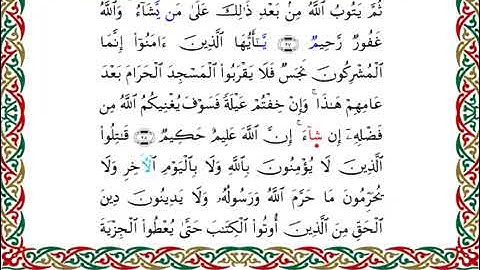 ثُمَّ يَتُوبُ ٱللَّهُ مِنۢ بَعۡدِ ذَٰلِكَ عَلَىٰ مَن يَشَآءُۗ وَٱللَّهُ
غَفُورٞ رَّحِيمٞ ٢٧ يَٰٓأَيُّهَا ٱلَّذِينَ ءَامَنُوٓاْ إِنَّمَا
ٱلۡمُشۡرِكُونَ نَجَسٞ فَلَا يَقۡرَبُواْ ٱلۡمَسۡجِدَ ٱلۡحَرَامَ بَعۡدَ
عَامِهِمۡ هَٰذَاۚ وَإِنۡ خِفۡتُمۡ عَيۡلَةٗ فَسَوۡفَ يُغۡنِيكُمُ ٱللَّهُ مِن
فَضۡلِهِۦٓ إِن شَآءَۚ إِنَّ ٱللَّهَ عَلِيمٌ حَكِيمٞ ٢٨ قَٰتِلُواْ
ٱلَّذِينَ لَا يُؤۡمِنُونَ بِٱللَّهِ وَلَا بِٱلۡيَوۡمِ ٱلۡأٓخِرِ وَلَا
يُحَرِّمُونَ مَا حَرَّمَ ٱللَّهُ وَرَسُولُهُۥ وَلَا يَدِينُونَ دِينَ
ٱلۡحَقِّ مِنَ ٱلَّذِينَ أُوتُواْ ٱلۡكِتَٰبَ حَتَّىٰ يُعۡطُواْ ٱلۡجِزۡيَةَ